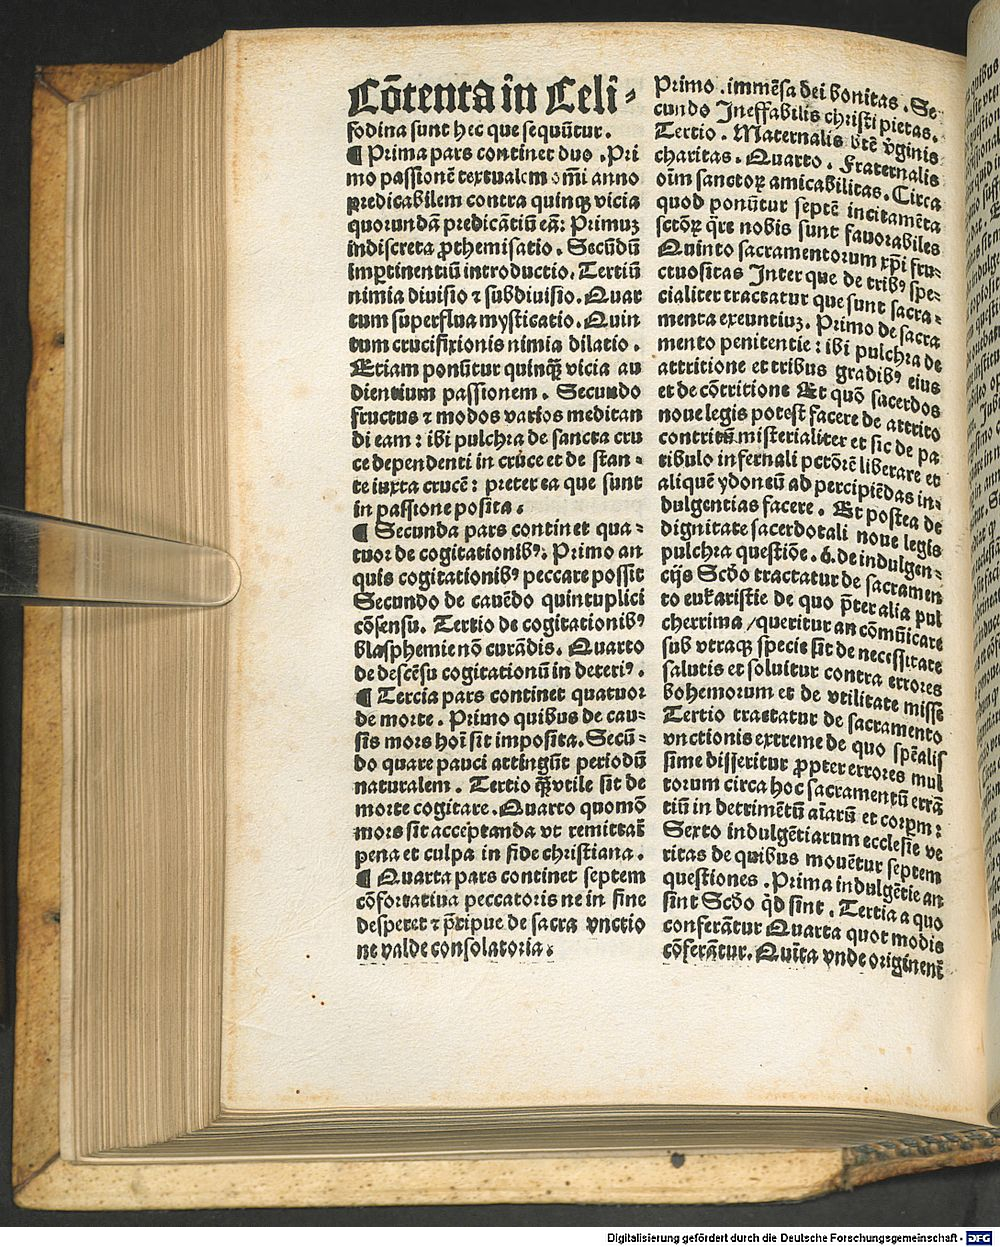 Cōtenta in Celi⸗
fodina sunt hec que sequūtur.
¶ Prima pars continet duo. Pri
mo passionē textualem omi anno
predicabilem contra quinqꝫ vicia
quorundā predicātiū eā: Primuꝫ
indiscreta ꝓthemisatio. Secūdū
imꝑtinentiū introductio. Tertiū
nimia diuisio ⁊ subdiuisio. Quar
tum superflua mysticatio. Quin
tum crucifixionis nimia dilatio.
Etiam ponūtur quinqꝫ vicia au
dientium passionem. Secundo
fructus ⁊ modos varios meditan
di eam: ibi pulchra de sancta cru
ce dependenti in cruce et de stan⸗
te iuxta crucē: preter ea que sunt
in passione posita.
¶ Secunda pars continet qua⸗
tuor de cogitationibꝰ. Primo an
quis cogitationibꝰ peccare possit
Secundo de cauēdo quintuplici
cōsensu. Tertio de cogitationibꝰ
blasphemie nō curādis. Quarto
de descēsu cogitationū in deteriꝰ.
¶ Tercia pars continet quatuor
de morte. Primo quibus de cau⸗
sis mors hoī sit imposita. Secū⸗
do quare pauci attingūt periodū
naturalem. Tertio ꝙ̄ vtile sit de
morte cogitare. Quarto quomō
mors sit acceptanda vt remittat᷑
pena et culpa in fide christiana.
¶ Quarta pars continet septem
cōfortatiua peccatoris ne in fine
desperet ⁊ p̄cipue de sacra vnctio
ne valde consolatoria.
Primo. immēsa dei bonitas. Se
cundo Ineffabilis christi pietas.
Tertio. Maternalis btē v̄ginis
charitas. Quarto. Fraternalis
oīm sanctoꝝ amicabilitas. Circa
quod ponūtur septē incitamēta
sctōꝝ q̄re nobis sunt fauorabiles
Quinto sacramentorum xp̄i fru⸗
ctuositas Inter que de tribꝰ spe⸗
cialiter tractatur que sunt sacra⸗
menta exeuntiuꝫ. Primo de sacra
mento penitentie: ibi pulchra de
attritione et tribus gradibꝰ eius
et de cōtritione Et quō sacerdos
noue legis potest facere de attrito
contritū misterialiter et sic de pa
tibulo infernali pctōrē liberare et
aliquē ydoneū ad percipiēdas in⸗
dulgentias facere. Et postea de
dignitate sacerdotali noue legis
pulchra questiōe. 6. de indulgen⸗
cijs Scdo tractatur de sacramen
to eukaristie de quo p̄ter alia pul
cherrima / queritur an cōmūicare
sub vtraqꝫ specie sit de necessitate
salutis et soluitur contra errores
bohemorum et de vtilitate misse
Tertio tractatur de sacramento
vnctionis extreme de quo spēalis
sime disseritur ꝓpter errores mul
torum circa hoc sacramentū errā
tiū in detrimētū aīarū et corꝑm:
Sexto indulgētiarum ecclesie ve
ritas de quibus mouētur septem
questiones. Prima indulgētie an
sint Scdo qd sint. Tertia a quo
conferātur Quarta quot modis
cōferātur. Quīta vnde originent᷑
Digitalisierung gefördert durch die Deutsche Forschungsgemeinschaft - DFG